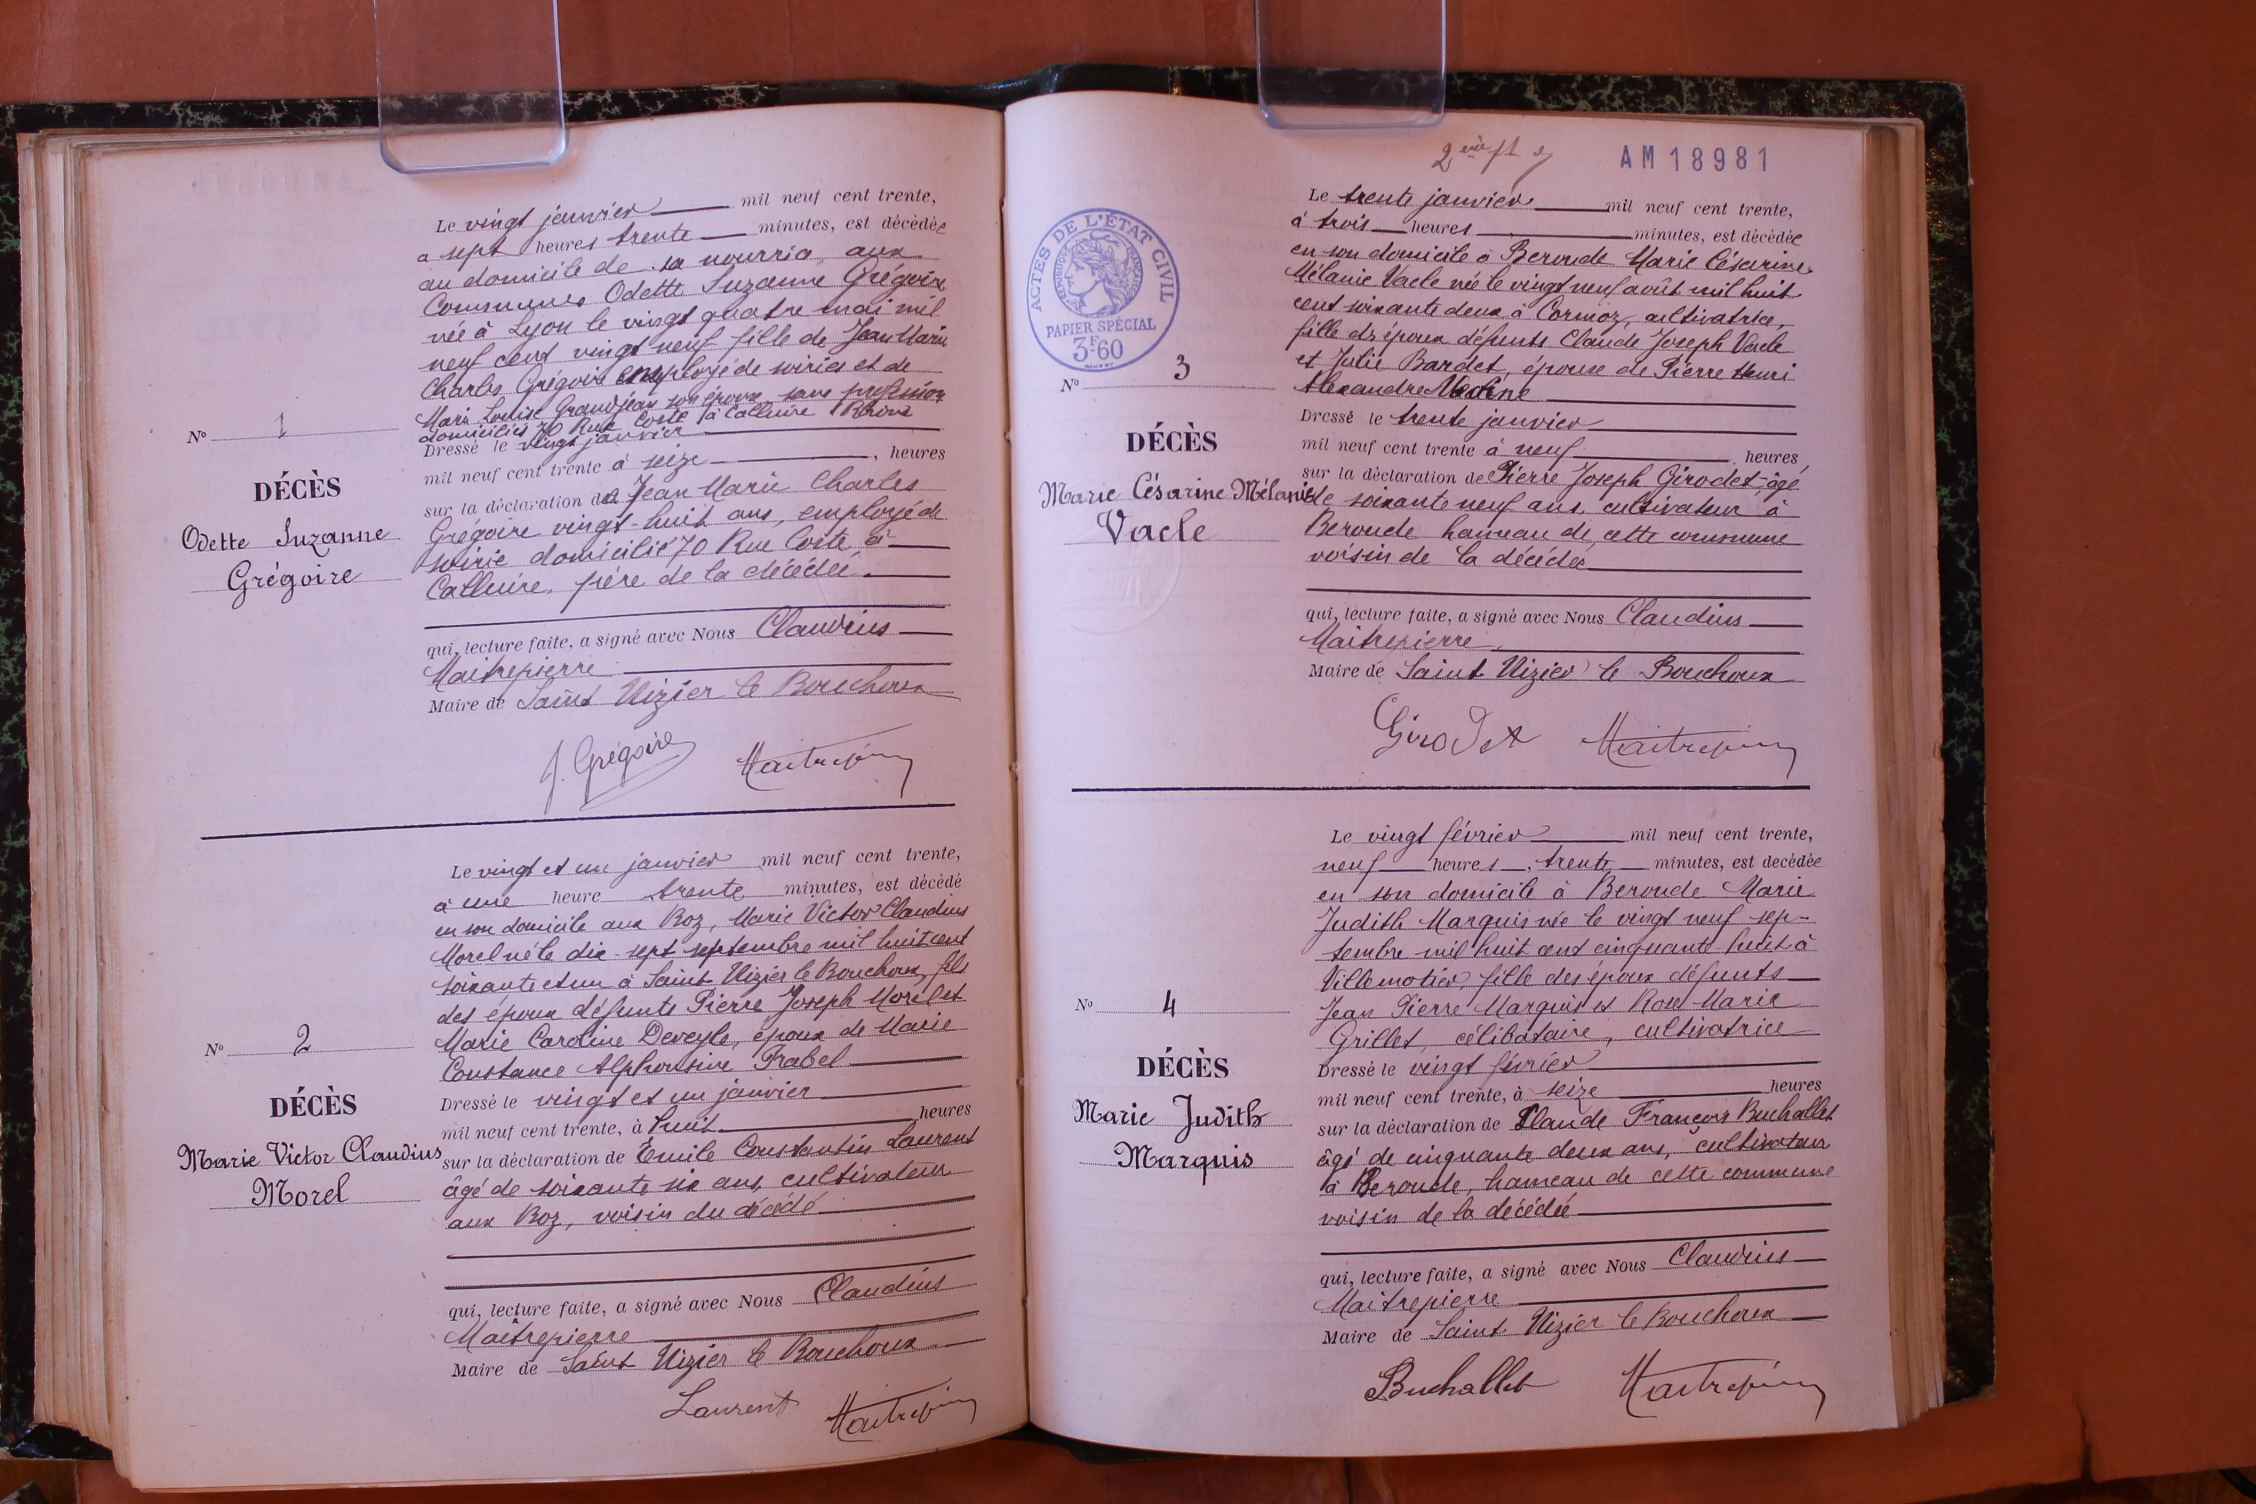 Le vingt janvier mil neuf cent trente,
à sept heures trente minutes, est décédée
au domicile de sa nourrice, aux
Communes Odette Suzanne Grégoire
née à Lyon le vingt quatre mai mil
neuf cent vingt neuf fille de Jean Marie
Charles Grégoire employé de soiries et de
Marie Louise Grandjean son épouse sans profession
domiciliés 70 Rue Coste à Calluire Rhône
Nº 1
DÉCÈS
Odette Suzanne
Grégoire
Dressé le vingt janvier
mil neuf cent trente à seize, heures
sur la déclaration de Jean Marie Charles
Grégoire vingt-huit ans, employé de
soirie domicilié 70 Rue Coste, à
Calluire, père de la décédée.
qui, lecture faite, a signé avec Nous Claudius
Maitrepierre
Maire de Saint Nizier le Bouchoux
J. Grégoire Maitrepierre
Le vingt et un janvier mil neuf cent trente,
à une heure trente minutes, est décédé
en son domicile aux Boz, Marie Victor Claudius
Morel né le dix-sept septembre mil huit cent
soixante et un à Saint Nizier le Bouchoux, fils
des époux défunts Pierre Joseph Morel et
Marie Caroline Deveyle, époux de Marie
Constance Alphonsine Frabel
Nº 2
DÉCÈS
Marie Victor Claudius
Morel
Dressé le vingt et un janvier
mil neuf cent trente, à huit heures
sur la déclaration de Emile Constantin Laurent
âgé de soixante six ans, cultivateur
aux Boz, voisin du décédé
qui, lecture faite, a signé avec Nous Claudius
Maîtrepierre
Maire de Saint Nizier le Bouchoux
Laurent Maitrepierre
AM18981
ACTES DE L'ÉTAT CIVIL
RÉPUBLIQUE FRANÇAISE
PAPIER SPÉCIAL
3F60
Le trente janvier mil neuf cent trente,
à trois heures minutes, est décédée
en son domicile à Beroude Marie Césarine
Mélanie Vacle née le vingt neuf août mil huit
cent soixante deux à Cormoz, cultivatrice,
fille des époux défunts Claude Joseph Vacle
et Julie Bardet, épouse de Pierre Henri
Alexandre
Nº 3
DÉCÈS
Marie Césarine Mélanie
Vacle
Dressé le trente janvier
mil neuf cent trente à neuf heures,
sur la déclaration de Pierre Joseph Girodet âgé
de soixante neuf ans, cultivateur à
Beroude hameau de cette commune
voisin de la décédée
qui, lecture faite, a signé avec Nous Claudius
Maitrepierre
Maire de Saint Nizier le Bouchoux
Girodet Maitrepierre
Le vingt février mil neuf cent trente,
neuf heures, trente minutes, est decédée
en son domicile à Beroude Marie
Judith Marquis née le vingt neuf sep-
tembre mil huit cent cinquante huit à
Villemotier, fille des époux défunts
Jean Pierre Marquis et Rose-Marie
Grillet, célibataire, cultivatrice
Nº 4
DÉCÈS
Marie Judith
Marquis
Dressé le vingt février
mil neuf cent trente, à seize heures
sur la déclaration de Claude François Buchallet
âgé de cinquante deux ans, cultivateur
à Beroude, hameau de cette commune
voisin de la décédée
qui, lecture faite, a signé avec Nous Claudius
Maitrepierre
Maire de Saint Nizier le Bouchoux
Buchallet Maitrepierre